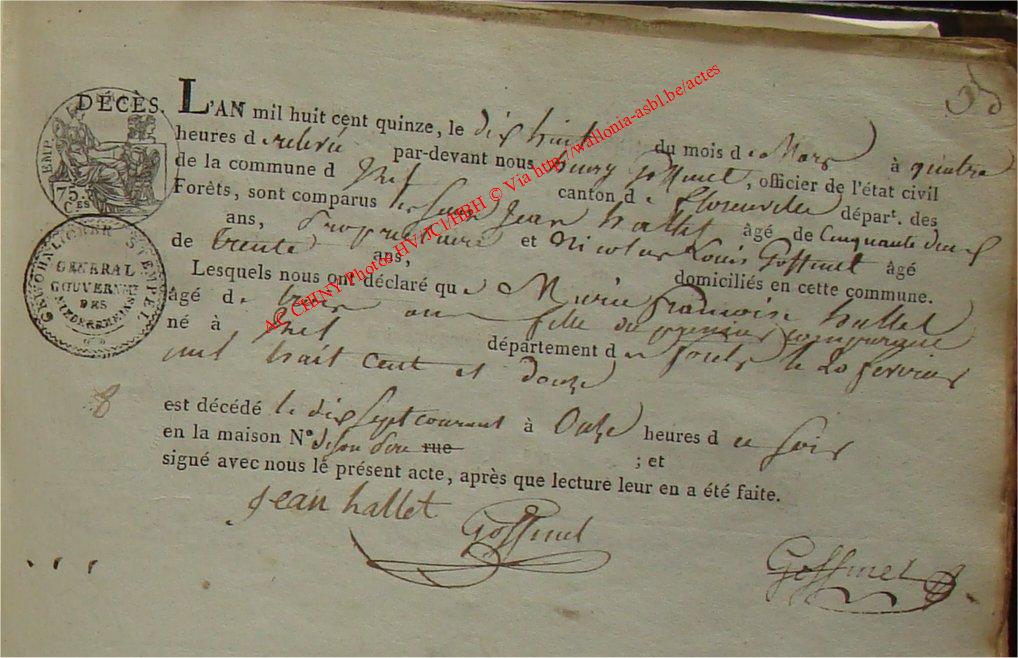 DÉCÈS. L'AN mil huit cent quinze, le dix huit du mois de Mars à quatre
heures de relevée par-devant nous henry Goffinet, officier de l'état civil
de la commune d canton de florenville départ. des
Forêts, sont comparus Jean hallet âgé de Cinquante deux
ans, Proprietaire et Nicolas Louis Goffinet âgé
de trente ans, domiciliés en cette commune.
Lesquels nous ont déclaré que Marie francoise hallet
âgé de trois ans fille du premier comparant
né à département de forets le 20 fevrier
mil huit cent et douze
8
est décédé le dix sept courant à Onze heures du soir
en la maison N° de son père rue ; et
signé avec nous le présent acte, après que lecture leur en a été faite.
jean hallet
Goffinet
Goffinet
EMP.
75
CES
STEMPEL
GENERAL
GOUVERNMT
DES
NIEDERRHEINS
AC CHINY Photos HV/JCI/HBH © Via http://wallonia-asbl.be/actes